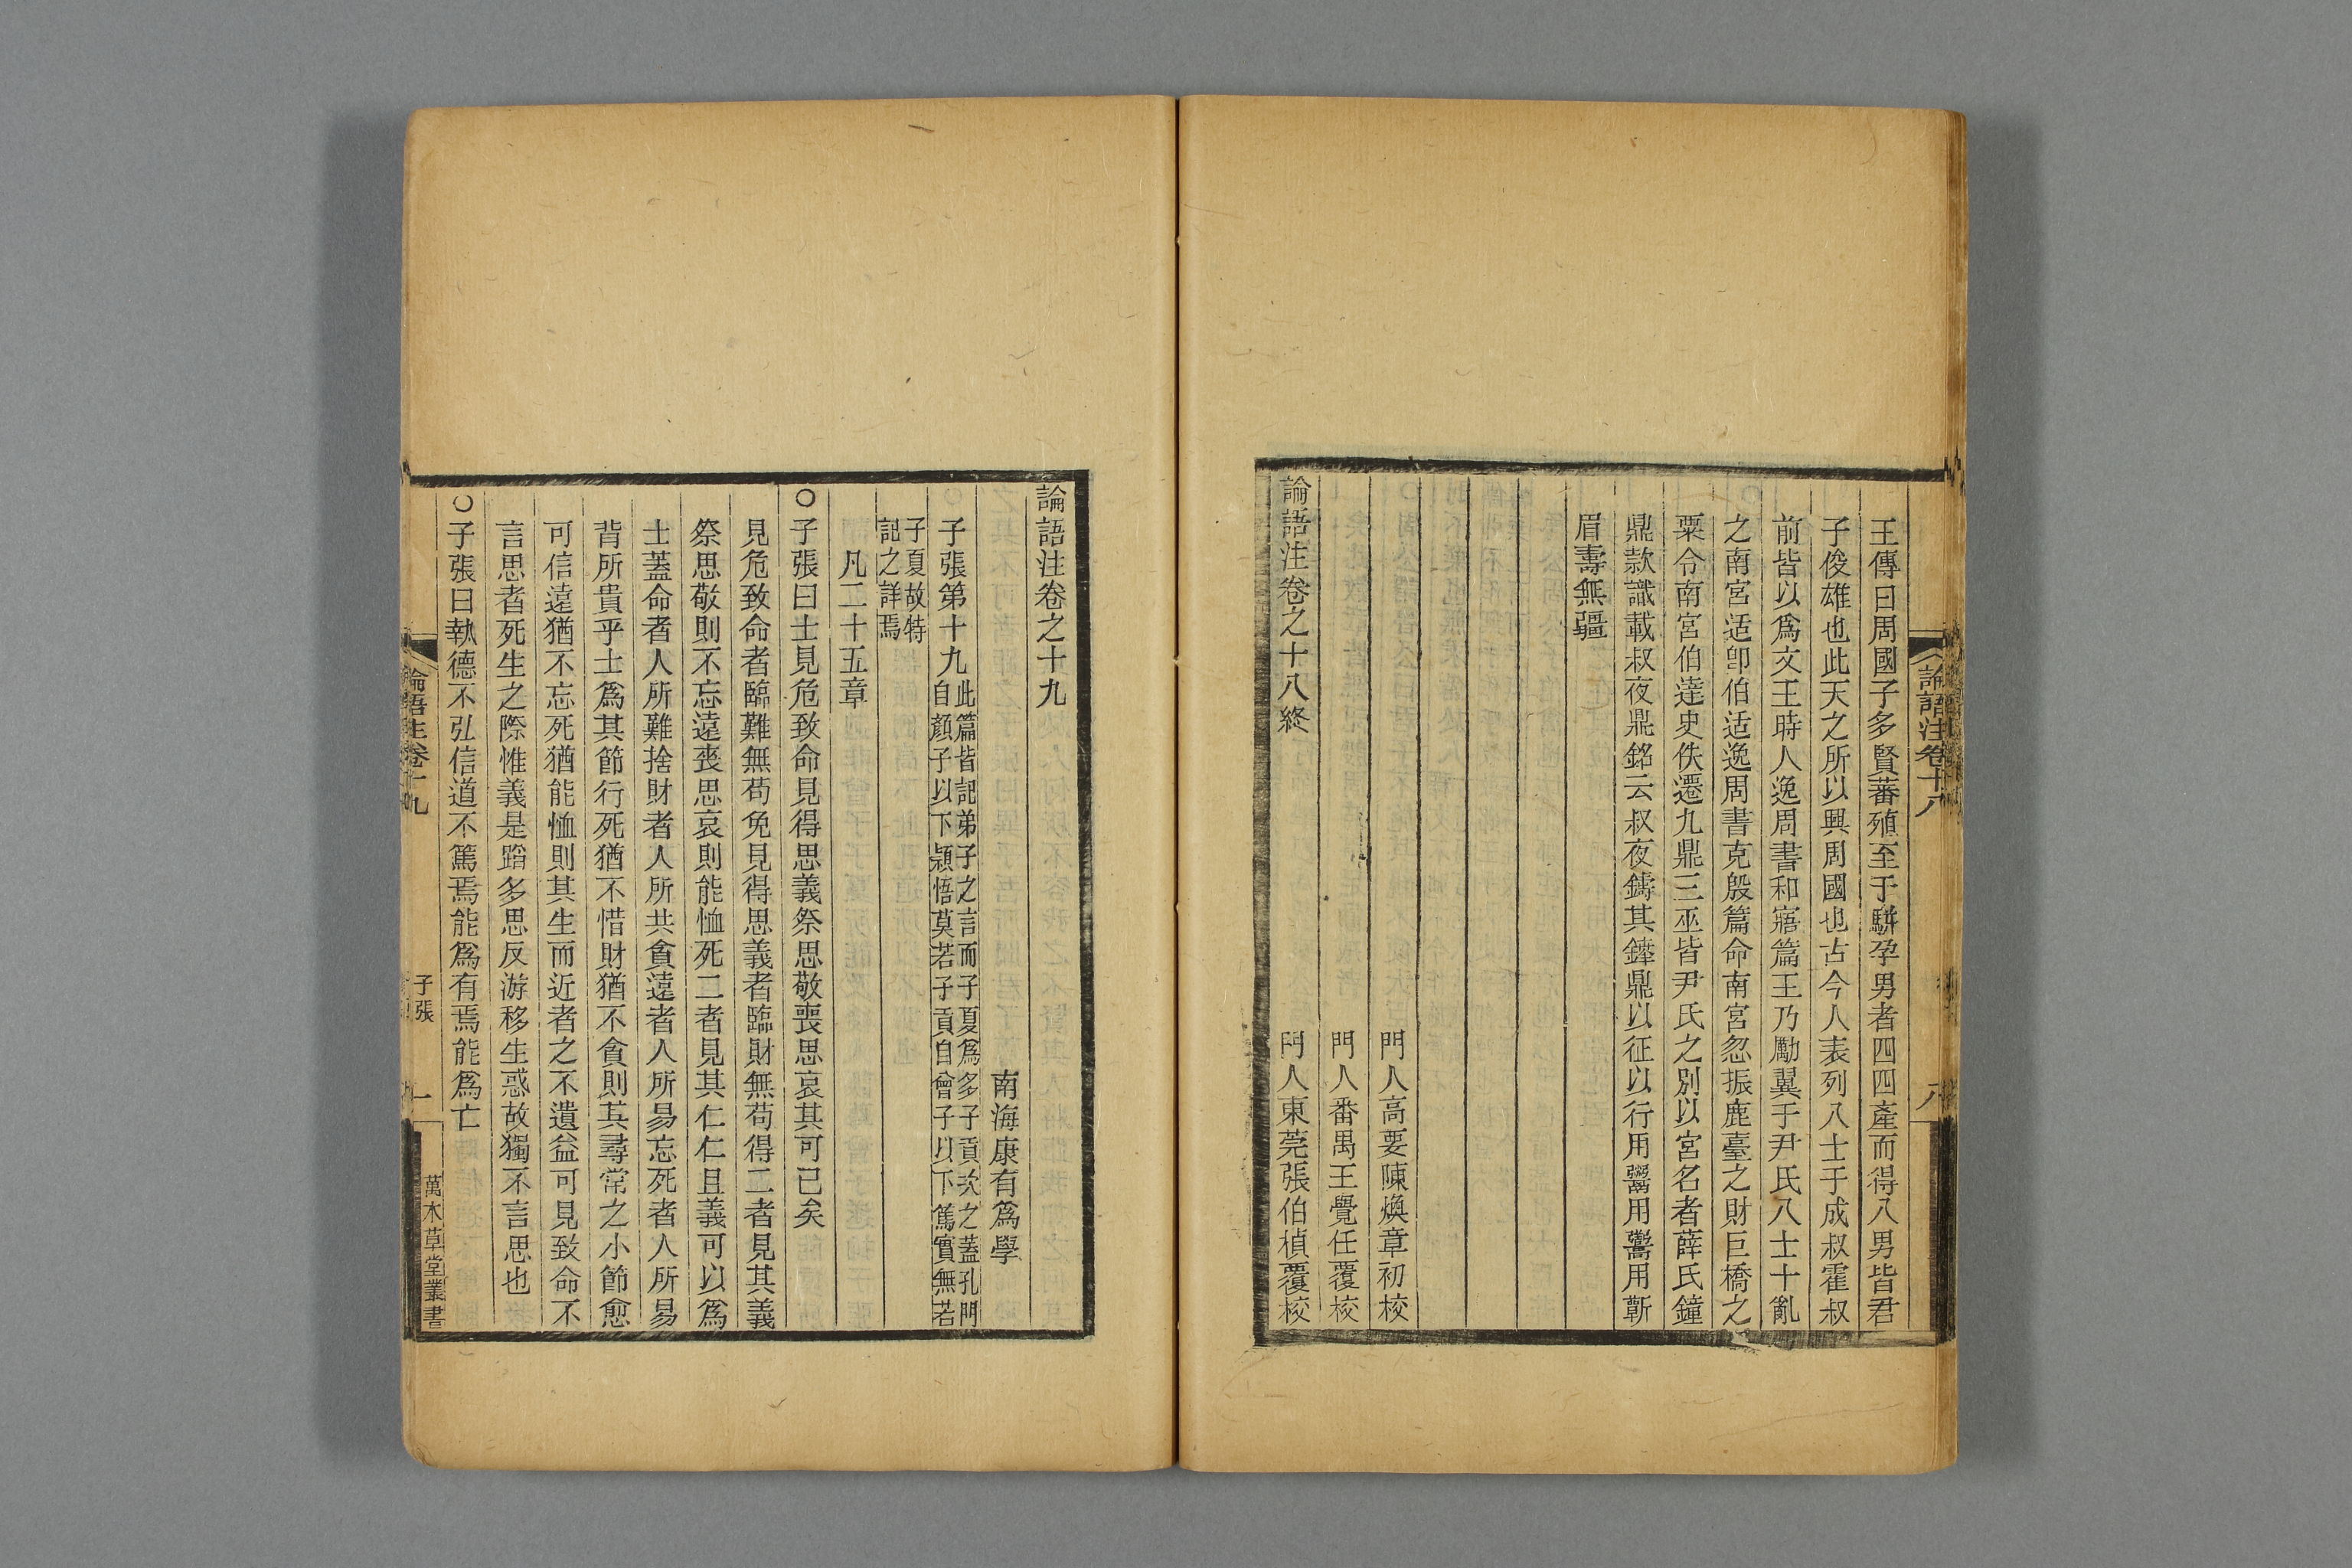 論語注卷十八
八
王傳曰周國子多賢蕃殖至于駢孕男者四四產而得八男皆君
子俊雄也此天之所以興周國也古今人表列八士于成叔霍叔
前皆以爲文王時人逸周書和寤篇王乃勵翼于尹氏八士十亂
之南宮适卽伯适逸周書克殷篇命南宮忽振鹿臺之財巨橋之
粟令南宮伯達史佚遷九鼎三巫皆尹氏之別以宮名者薛氏鐘
鼎款識載叔夜鼎銘云叔夜鑄其鐽鼎以征以行用鬻用鬺用蘄
眉壽無疆
門人高要陳煥章初校
門人番禺王覺任覆校
論語注卷之十八終
門人東莞張伯楨覆校
論語注卷之十九
南海康有爲學
子張第十九
此篇皆記弟子之言而子夏爲多子貢次之蓋孔門
自顏子以下穎悟莫若子貢自曾子以下篤實無若
子夏故特
記之詳焉
凡二十五章
○子張曰士見危致命見得思義祭思敬喪思哀其可已矣
見危致命者臨難無苟免見得思義者臨財無苟得二者見其義
祭思敬則不忘遠喪思哀則能恤死二者見其仁仁且義可以爲
士蓋命者人所難捨財者人所共貪遠者人所易忘死者人所易
背所貴乎士爲其節行死猶不惜財猶不貪則其尋常之小節愈
可信遠猶不忘死猶能恤則其生而近者之不遺益可見致命不
言思者死生之際惟義是蹈多思反游移生惑故獨不言思也
○子張曰執德不弘信道不篤焉能爲有焉能爲亡
論語注卷十九
子張
一
萬木草堂叢書